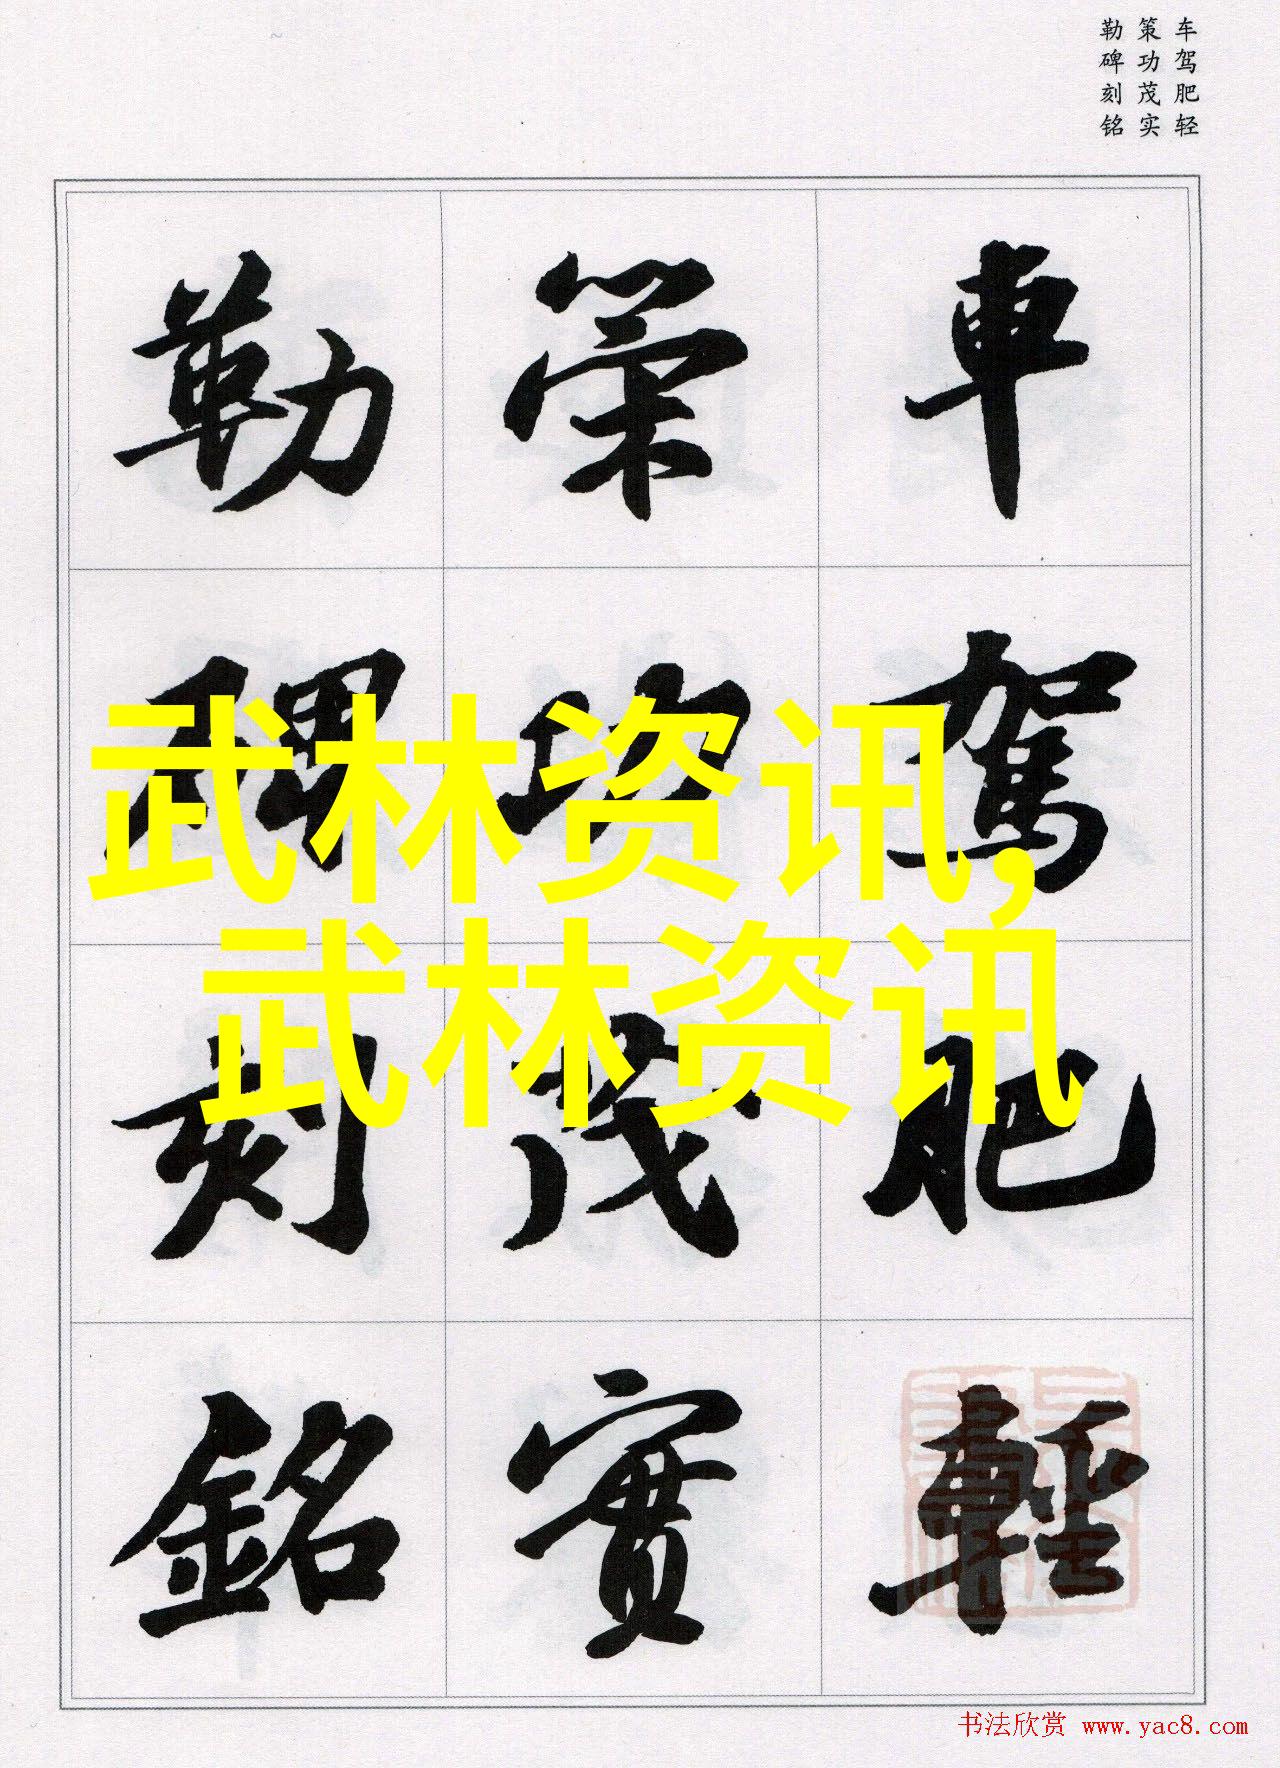 车驾肥轻
策功茂实
勒碑刻铭
車駕肥輕
策功茂實
勒碑刻銘
武林资讯,
武林资讯
书法欣赏 www.yac8.com